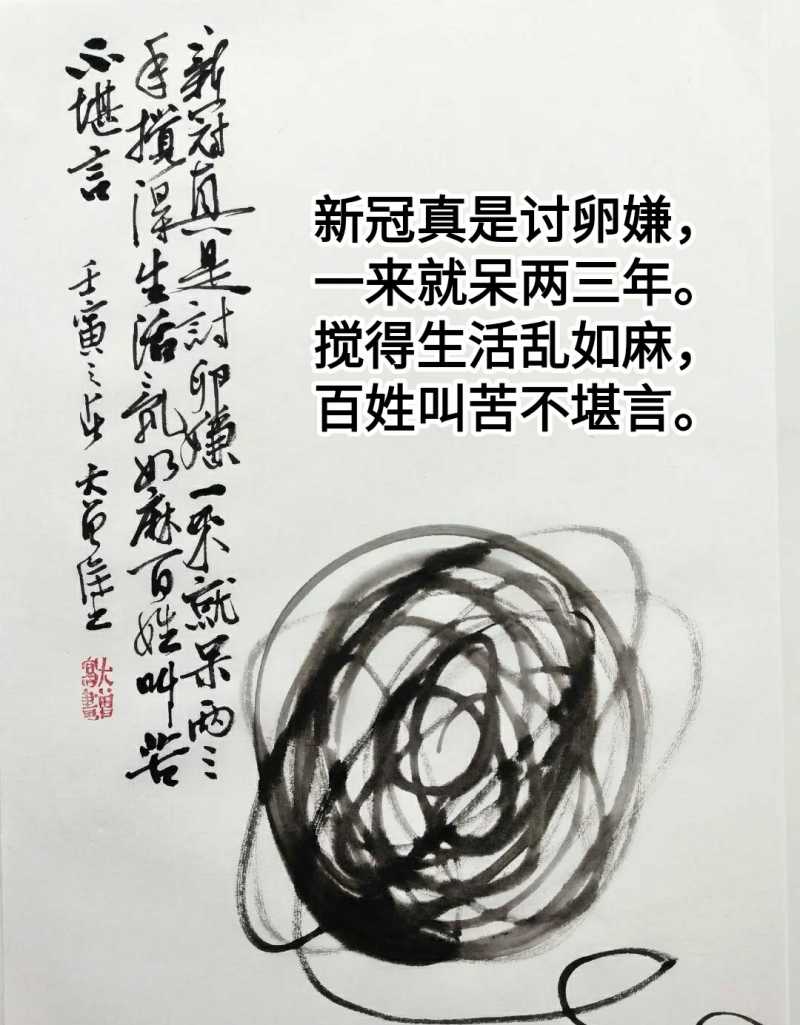 新冠真是討卵嫌一来就呆两三
年攪得生活乱如麻百姓叫苦
不堪言
壬寅之
大曾
新冠真是讨卵嫌，
一来就呆两三年。
搅得生活乱如麻，
百姓叫苦不堪言。